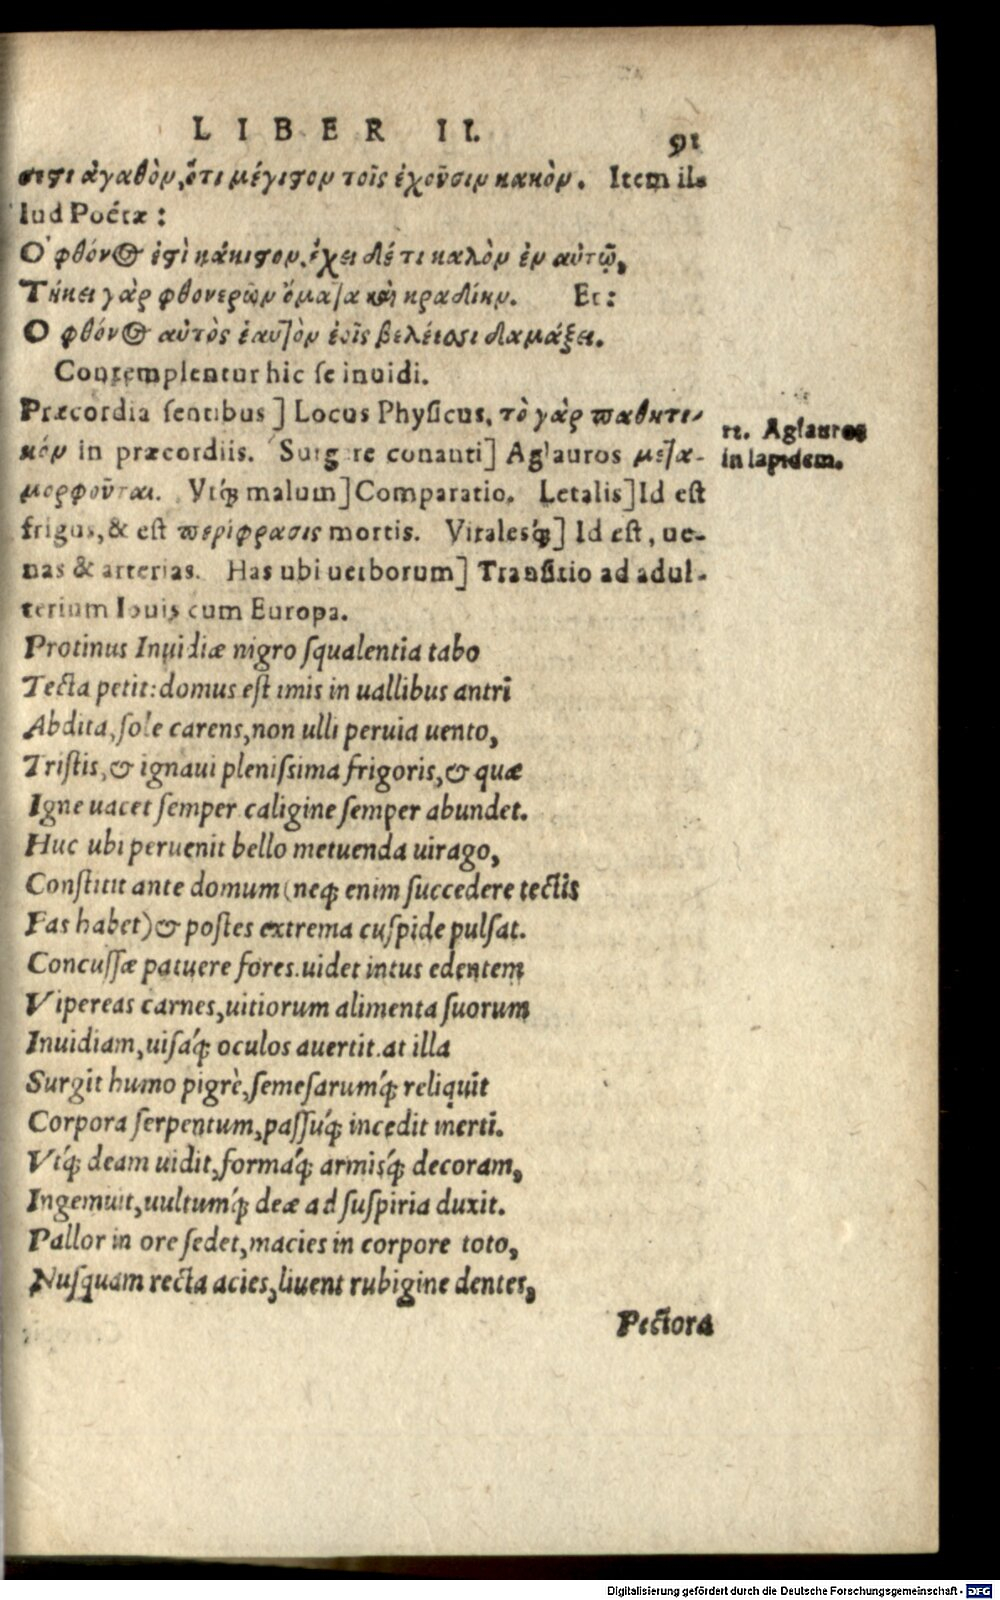 LIBER II. 91
ϛιϛι ἀγαθὸν, ὅτι μέγιϛον τοῖς ἐχοῦσιν κακὸν. Item il-
lud Poëtæ:
Ο φθόνος ἐϛὶ κάκιϛον, ἔχει δέ τι καλὸν ἐν αὐτῷ,
Τήκει γὰρ φθονερῶν ὄματα καὶ κραδίην. Et:
Ο φθόνος αὐτὸς ἑαυτὸν ἑοῖς βελέεσσι δαμάζει.
Contemplentur hic se inuidi.
Præcordia sentibus] Locus Physicus, τὸ γὰρ παθητι-
κόν in præcordiis. Surgere conanti] Aglauros μετα-
μορφοῦται. Vtq́; malum] Comparatio. Letalis] Id est
frigus, & est περίφρασις mortis. Vitalesq́;] Id est, ue-
nas & arterias. Has ubi uerborum] Transitio ad adul-
terium Iouis cum Europa.
11. Aglauros
in lapidem.
Protinus Inuidiæ nigro squalentia tabo
Tecta petit: domus est imis in uallibus antri
Abdita, sole carens, non ulli peruia uento,
Tristis, & ignaui plenissima frigoris, & quæ
Igne uacet semper caligine semper abundet.
Huc ubi peruenit bello metuenda uirago,
Constitit ante domum (neq; enim succedere tectis
Fas habet) & postes extrema cuspide pulsat.
Concussæ patuere fores. uidet intus edentem
Vipereas carnes, uitiorum alimenta suorum
Inuidiam, uisaq́; oculos auertit. at illa
Surgit humo pigrè, semesarumq́; reliquit
Corpora serpentum, passuq́; incedit inerti.
Vtq́; deam uidit, formaq́; armisq́; decoram,
Ingemuit, uultumq́; deæ ad suspiria duxit.
Pallor in ore sedet, macies in corpore toto,
Nusquam recta acies, liuent rubigine dentes,
Pectora
Digitalisierung gefördert durch die Deutsche Forschungsgemeinschaft - DFG